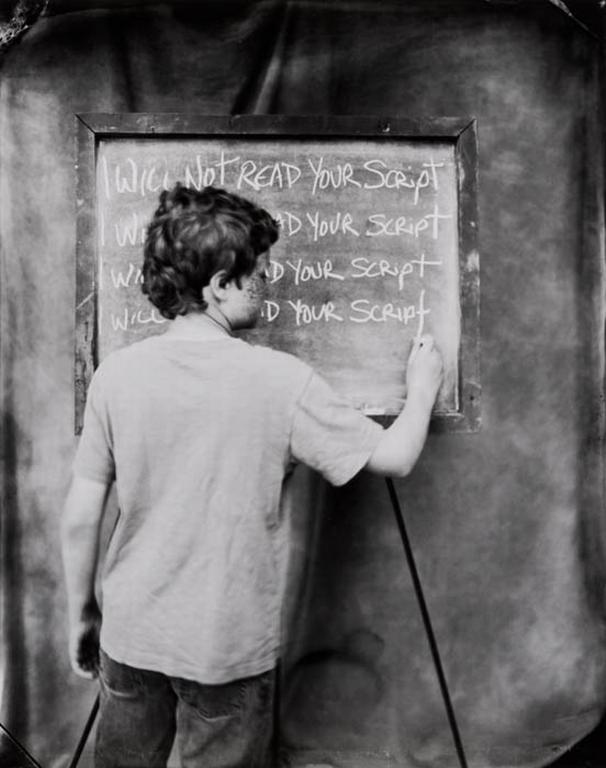 I WILL NOT READ YOUR SCRIPT
I WI AD YOUR SCRIPT
I WI D YOUR SCRIPT
I WILL D YOUR SCRIPT